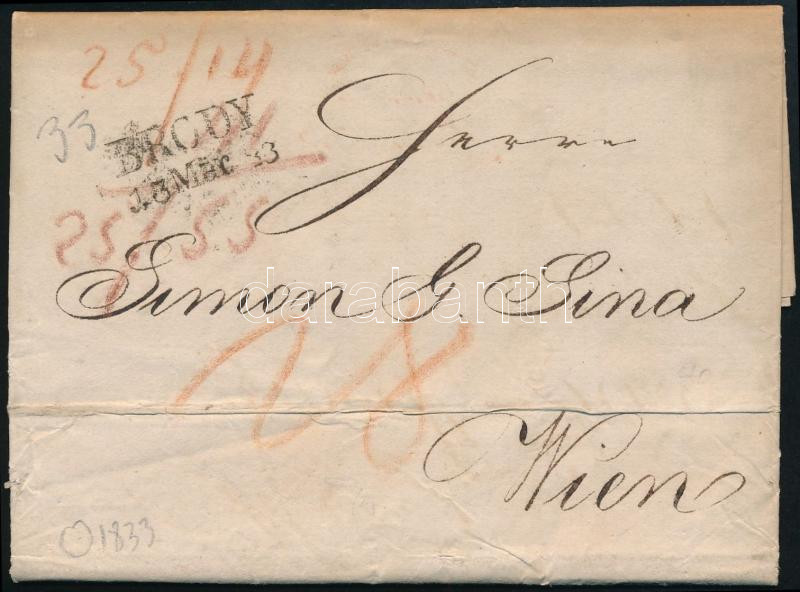 25/14
33
BRODY
13 Mär. 33
25/55
Herrn
Simon G. Sina
darabanth
28
Wien
1833